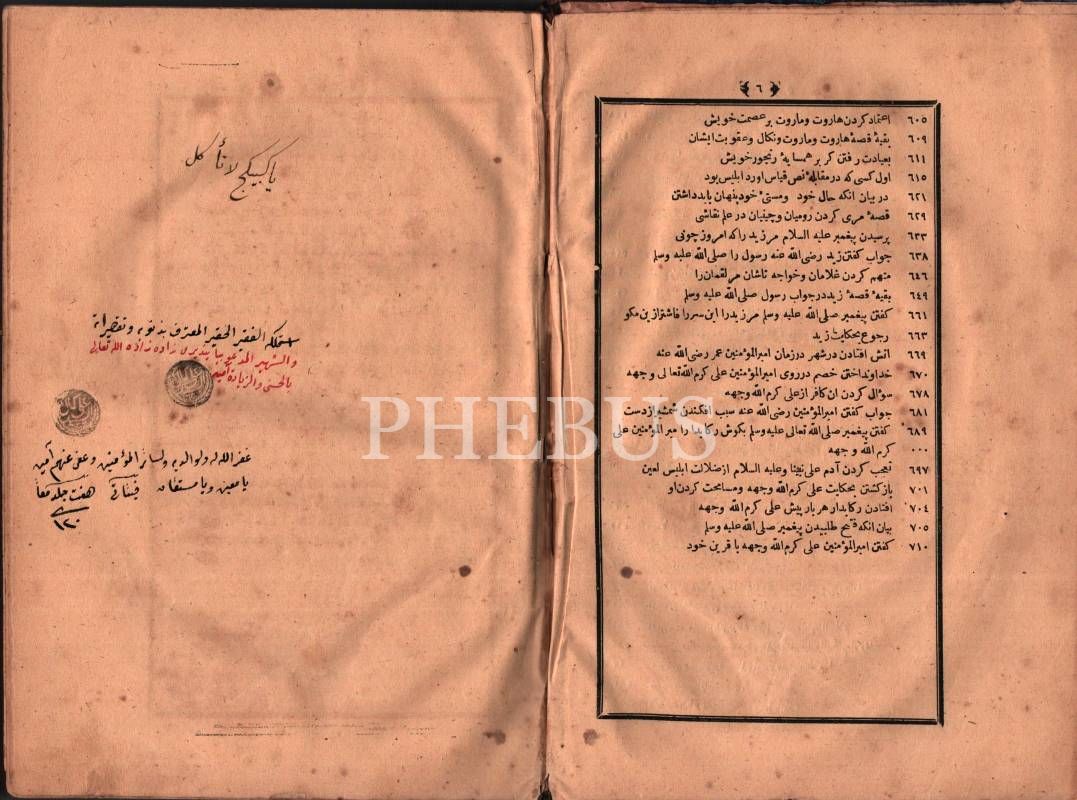 ٦
٦٠٥ اعتماد کردن هاروت وماروت بر عصمت خویش
٦٠٩ بقیهٔ قصهٔ هاروت وماروت ونکال وعقوبت ایشان
٦١١ بعیادت رفتن کر بر همسایهٔ رنجور خویش
٦١٥ اول کسی که در مقابلهٔ نص قیاس اورد ابلیس بود
٦٢١ در بیان انکه حال خود ومستیٔ خود پنهان باید داشتن
٦٢٩ قصهٔ مری کردن رومیان وچینیان در علم نقاشی
٦٣٣ پرسیدن پیغمبر علیه السلام مر زید را که امروز چونی
٦٣٨ جواب کفتن زید رضی الله عنه رسول را صلی الله علیه وسلم
٦٤٦ متهم کردن غلامان وخواجه تاشان مر لقمان را
٦٤٩ بقیهٔ قصهٔ زید در جواب رسول صلی الله علیه وسلم
٦٦١ کفتن پیغمبر صلی الله علیه وسلم مر زید را این سر را فاشتر ازین مکو
٦٦٣ رجوع بحکایت زید
٦٦٩ اتش افتادن در شهر در زمان امیر المؤمنین عمر رضی الله عنه
٦٧٠ خدو انداختن خصم در روی امیر المؤمنین علی کرم الله تعالی وجهه
٦٧٨ سؤال کردن ان کافر از علی کرم الله وجهه
٦٨١ جواب کفتن امیر المؤمنین رضی الله عنه سبب افکندن شمشیر از دست
٦٨٩ کفتن پیغمبر صلی الله تعالی علیه وسلم بکوش رکابدار امیر المؤمنین علی
٠٠٠ کرم الله وجهه
٦٩٧ تعجب کردن آدم علی نبینا وعلیه السلام از ضلالت ابلیس لعین
٧٠١ باز کشتن بحکایت علی کرم الله وجهه ومسامحت کردن او
٧٠٤ افتادن رکابدار هر بار پیش علی کرم الله وجهه
٧٠٥ بیان انکه فتح طلبیدن پیغمبر صلی الله علیه وسلم
٧١٠ کفتن امیر المؤمنین علی کرم الله وجهه با قرین خود
یا کبیکج لا تأکل
استملکه الفقیر الحقیر المعترف بذنوبه وتقصیراته
والشهیر المدعو زاده زاده الله تعالی
بالحسنی والزیادة آمین
غفر الله له ولوالدیه ولسائر المؤمنین وعفی عنهم آمین
یا معین ویا مستعان هفت جلد معا
١٢٠
PHEBUS